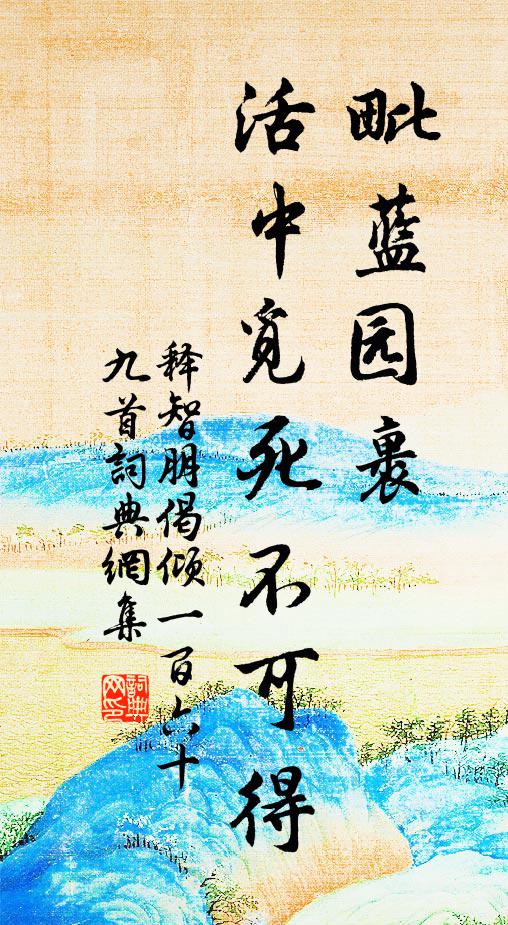 毗蓝园裹
活中觅死不可得
释智朋偈倾一百六十
九首詞典網集
詞典
网印